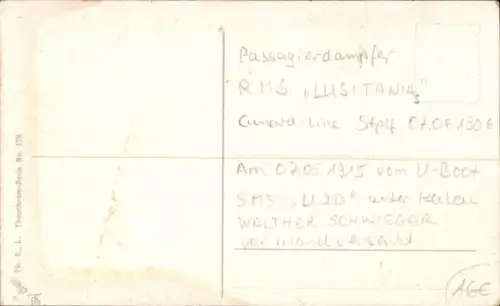 Passagierdampfer
RMS „LUSITANIA"
Cunard-Line Stplf 07.06.1906
Am 07.05.1915 vom U-Boot
SMS „U20" unter
WALTHER SCHWIEGER
vor Irland versenkt
16€
Th. E. L. Theochrom-Serie No. 178